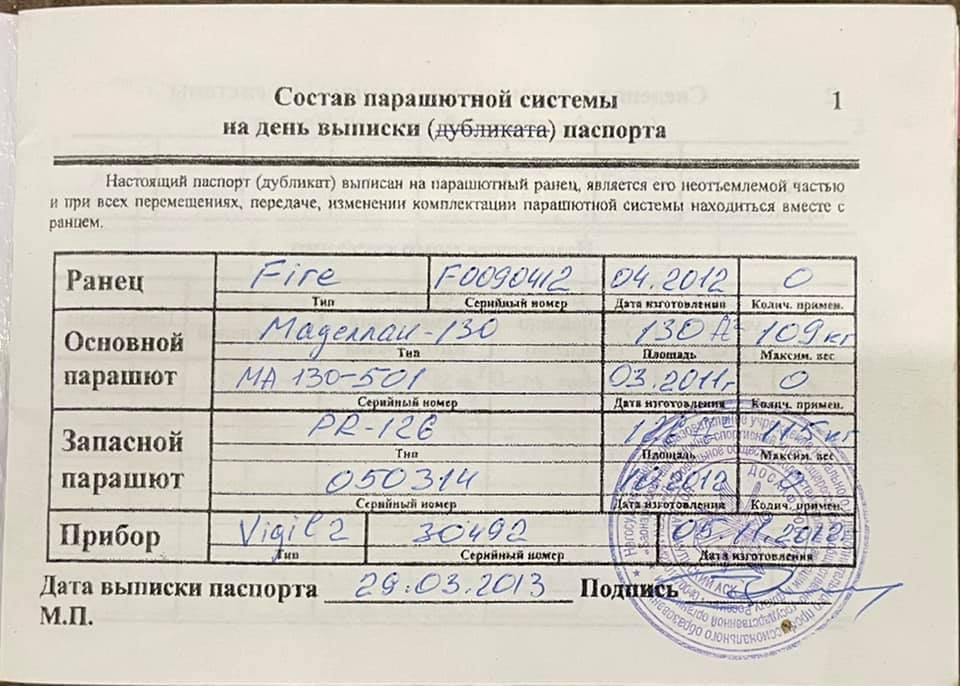 1
Состав парашютной системы
на день выписки (дубликата) паспорта
Настоящий паспорт (дубликат) выписан на парашютный ранец, является его неотъемлемой частью
и при всех перемещениях, передаче, изменении комплектации парашютной системы находиться вместе с
ранцем.
Ранец Fire F0090412 04.2012 0
Тип Серийный номер Дата изготовления Колич. примен.
Основной парашют Магеллан-130 130 109 кг
Тип Площадь Максим. вес
МА 130-501 03.2011г 0
Серийный номер Дата изготовления Колич. примен.
Запасной парашют PR-126 115 кг
Тип Площадь Максим. вес
050314 10.2012 0
Серийный номер Дата изготовления Колич. примен.
Прибор Vigil 2 30492 05.11.2012
Тип Серийный номер Дата изготовления
Дата выписки паспорта 29.03.2013 Подпись
М.П.